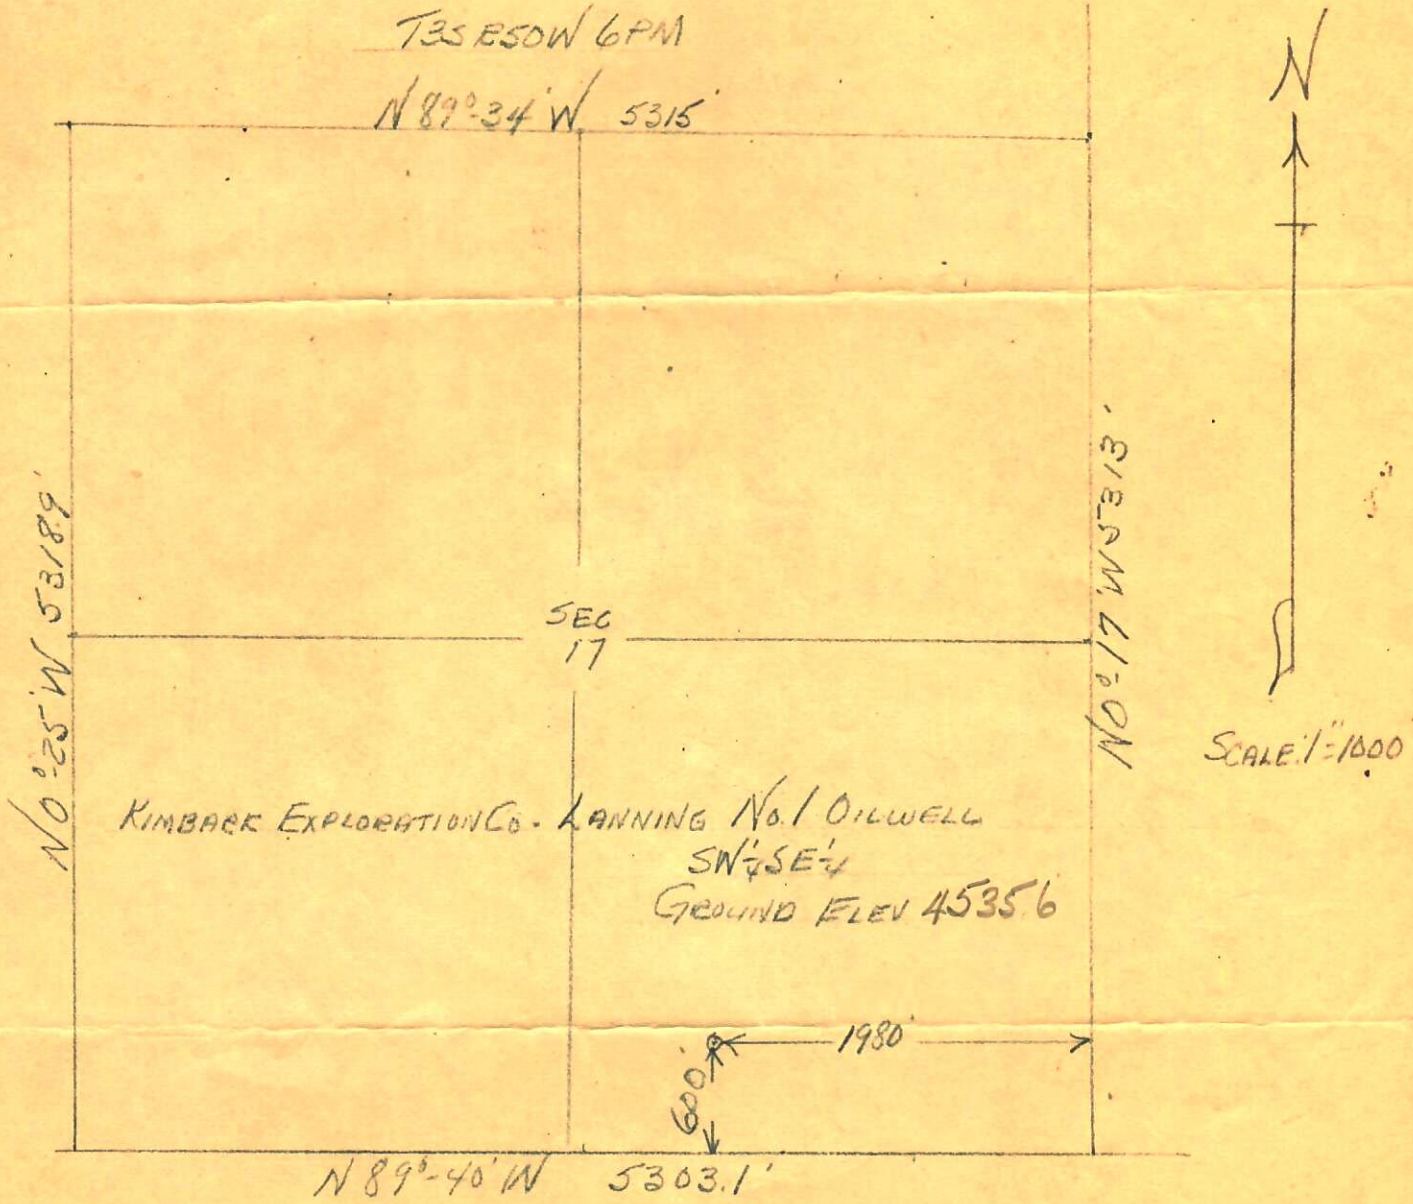 T3S R50W 6PM
N 89°-34' W 5315'
N
N0°-25' W 5318.9'
N0°-17' W 5313'
SEC
17
SCALE 1"=1000'
KIMBARK EXPLORATION CO. LANNING No. 1 OILWELL
SW¼SE¼
GROUND ELEV 4535.6
1980'
600'
N 89°-40' W 5303.1'